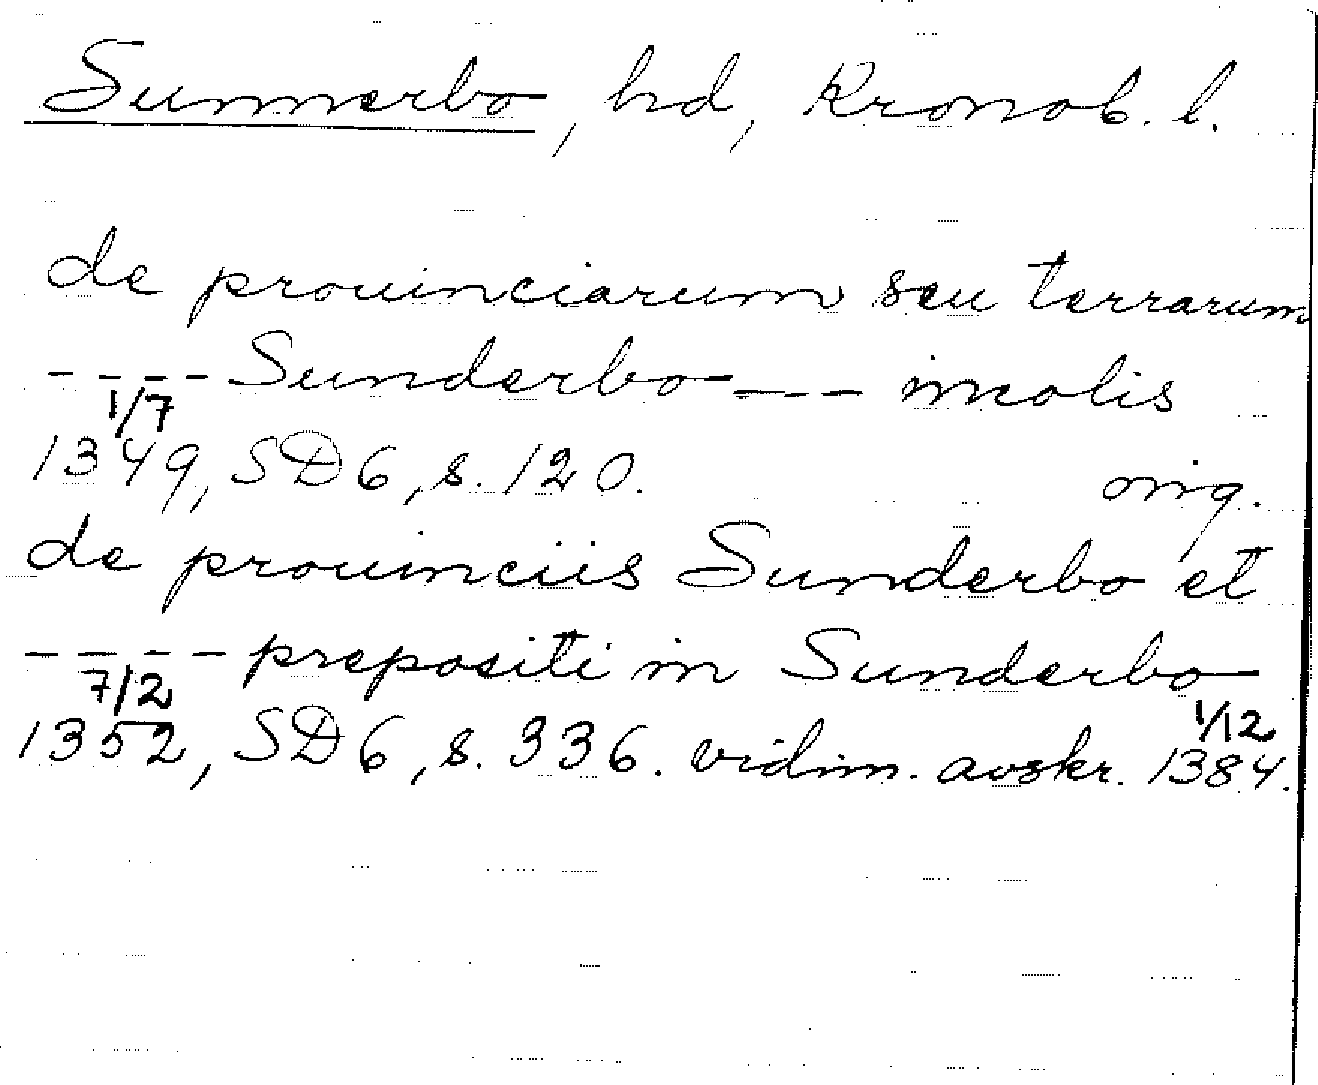 Sunnerbo, hd, Kronob. l.
de prouinciarum seu terrarum
---- Sunderbo --- incolis
1/7
1349, SD 6, s. 120. orig.
de prouinciis Sunderbo et
---- prepositi in Sunderbo
7/2 1/12
1352, SD 6, s. 336. vidim. avskr. 1384.